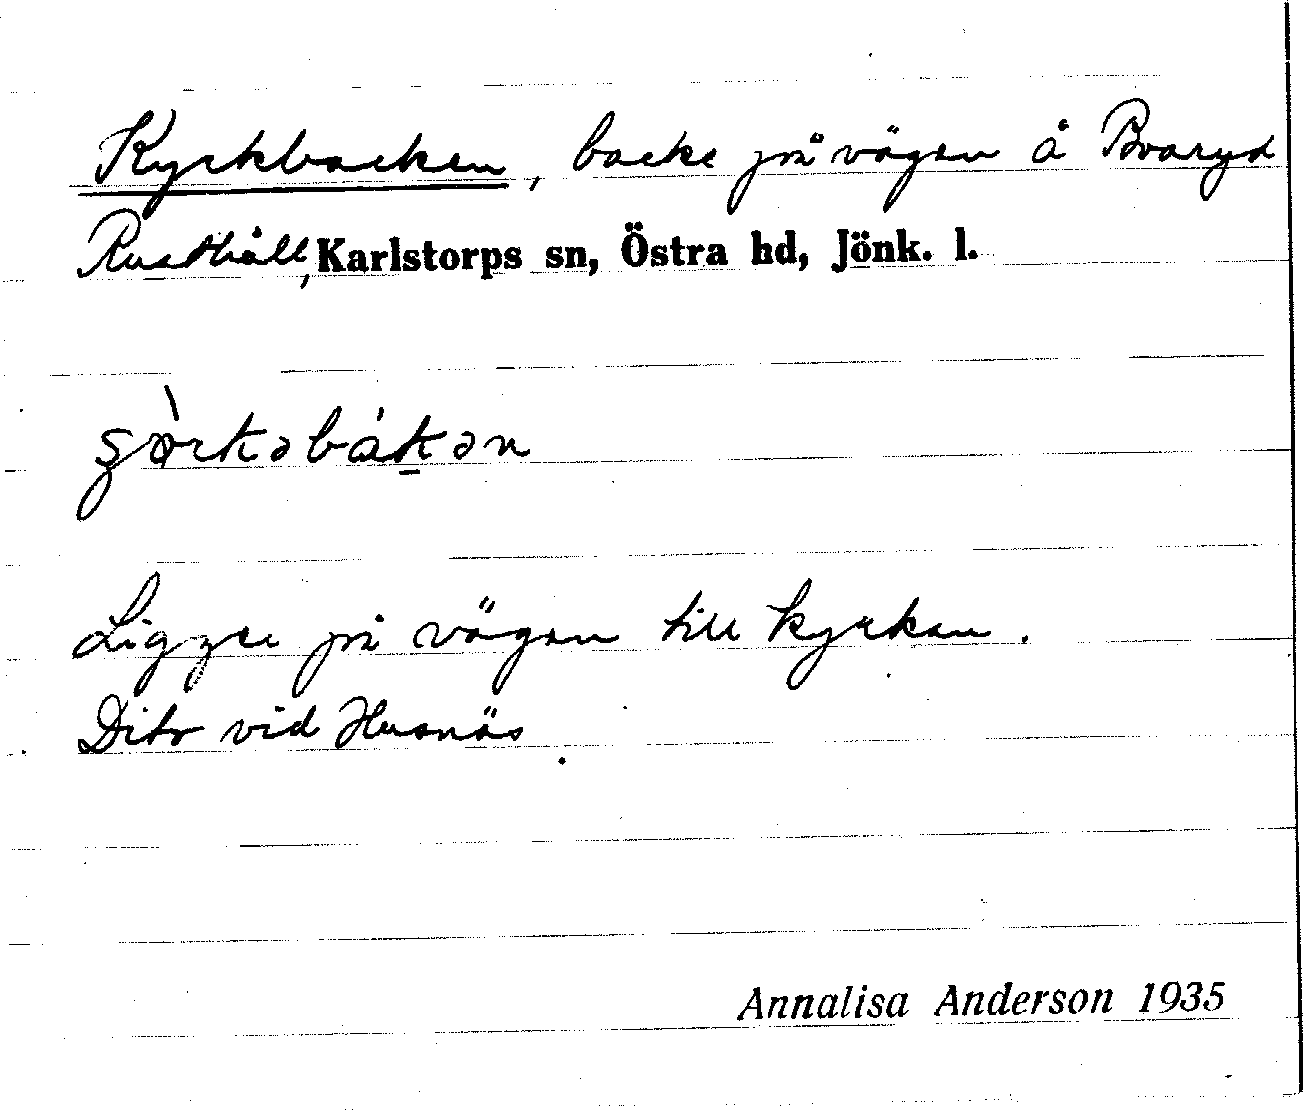 Kyrkbacken, backe på vägen å Broaryd
Rusthåll, Karlstorps sn, Östra hd, Jönk. l.
Ligger på vägen till kyrkan.
Dito vid Husnäs.
Annalisa Anderson 1935